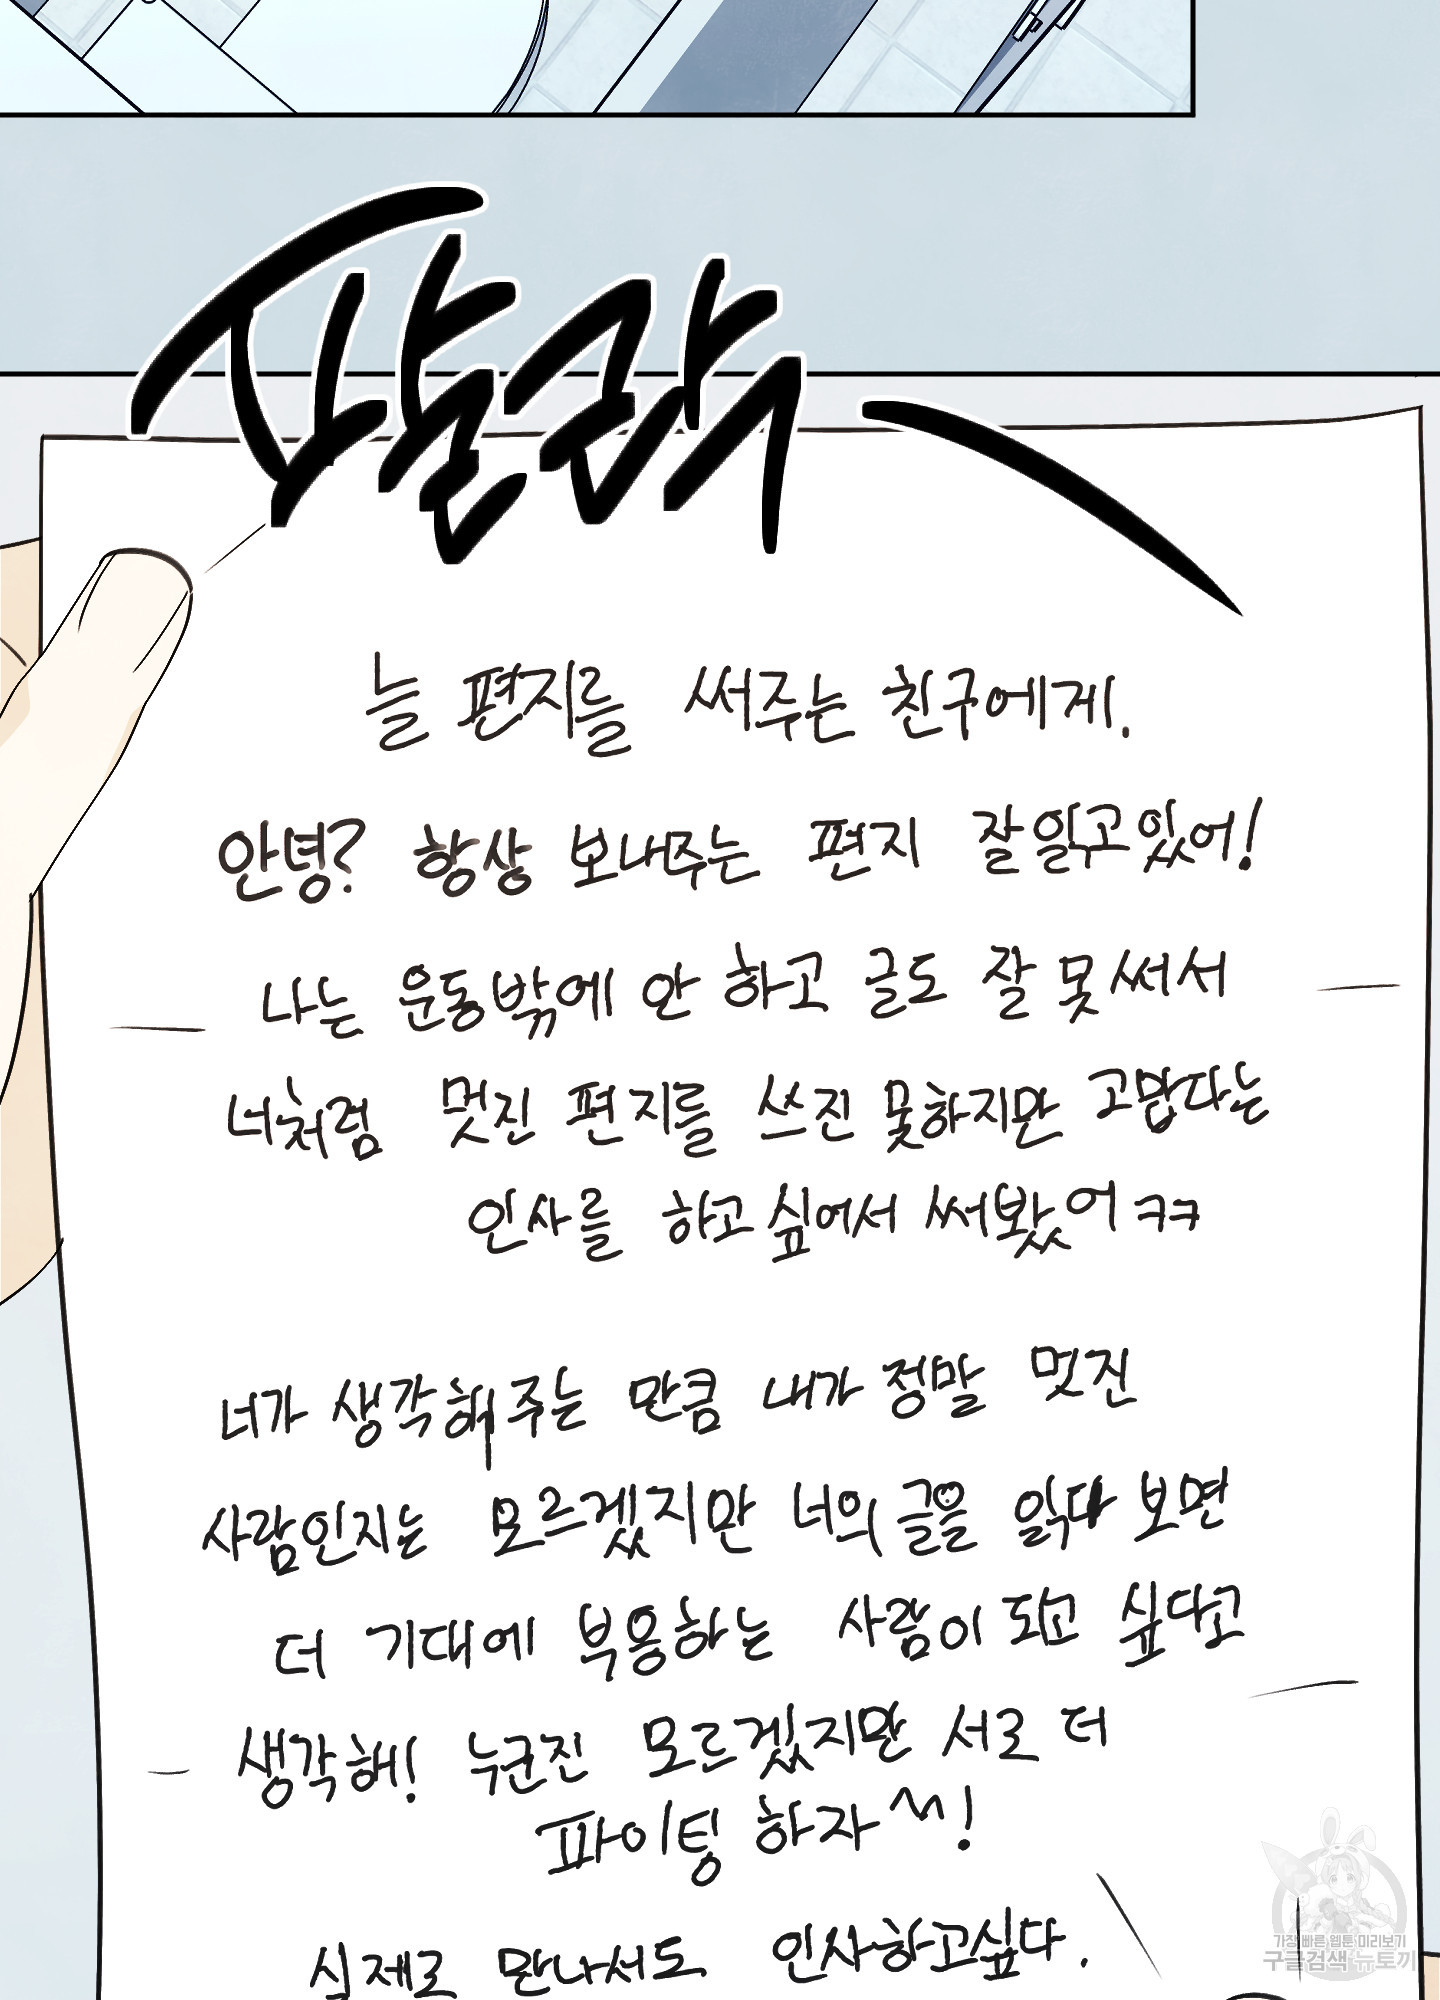 파할락
늘 편지를 써주는 친구에게.
안녕? 항상 보내주는 편지 잘읽고있어!
나는 운동밖에 안 하고 글도 잘 못써서
너처럼 멋진 편지를 쓰진 못하지만 고맙다는
인사를 하고싶어서 써봤어ㅋㅋ
너가 생각해주는 만큼 내가 정말 멋진
사람인지는 모르겠지만 너의 글을 읽다 보면
더 기대에 부응하는 사람이 되고 싶다고
생각해! 누군진 모르겠지만 서로 더
파이팅 하자^^!
실제로 만나서도 인사하고싶다.
가장 빠른 웹툰 미리보기
구글검색 뉴토끼